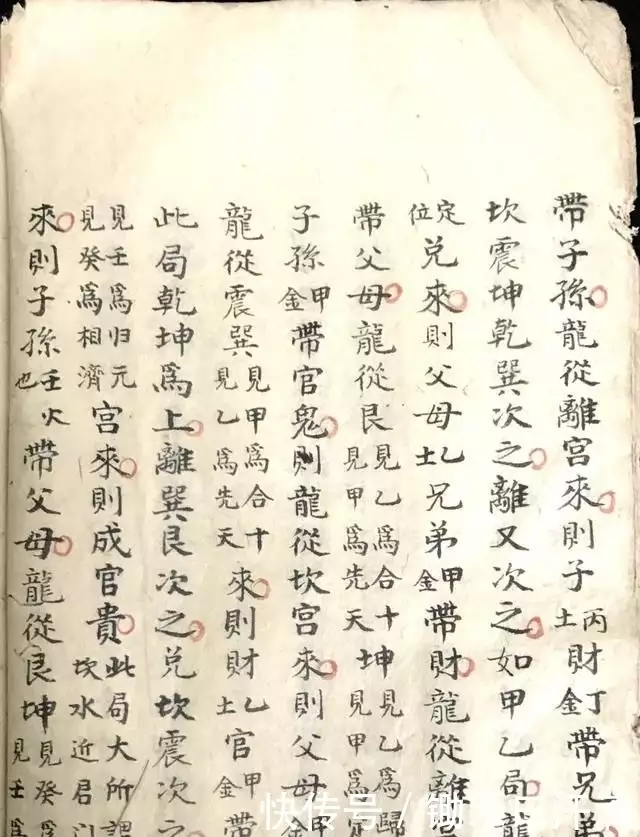 帶子孫龍從離宮來則子丙土財丁金帶兄弟
坎震坤乾巽次之離又次之如甲乙局龍
定位兌來則父母乙土兄弟甲金帶財龍從離
帶父母龍從艮見乙爲合十見甲爲先天坤見乙爲歸見甲爲
子孫甲金帶官鬼則龍從坎宮來則父母甲
龍從震巽見甲爲合十見乙爲先天來則財乙土官甲金帶
此局乾坤爲上離巽艮次之兌坎震次之
見壬爲归元見癸爲相濟宮來則成官貴此局大所謂坎水近君
來則子孫壬火也帶父母龍從艮坤見癸爲見壬
快传号 / 锄